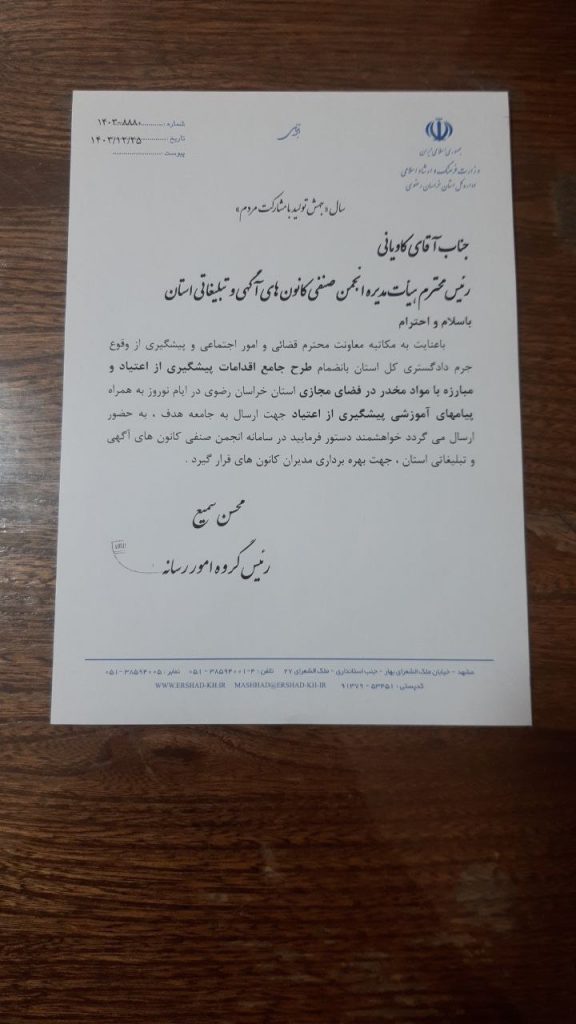 شماره : ۱۴۰۳-۸۸۸۰
تاریخ : ۱۴۰۳/۱۲/۲۵
پیوست :
جمهوری اسلامی ایران
وزارت فرهنگ و ارشاد اسلامی
اداره کل استان خراسان رضوی
سال «جهش تولید با مشارکت مردم»
جناب آقای کاویانی
رئیس محترم هیأت مدیره انجمن صنفی کانون های آگهی و تبلیغاتی استان
باسلام و احترام
باعنایت به مکاتبه معاونت محترم قضائی و امور اجتماعی و پیشگیری از وقوع
جرم دادگستری کل استان بانضمام طرح جامع اقدامات پیشگیری از اعتیاد و
مبارزه با مواد مخدر در فضای مجازی استان خراسان رضوی در ایام نوروز به همراه
پیامهای آموزشی پیشگیری از اعتیاد جهت ارسال به جامعه هدف ، به حضور
ارسال می گردد خواهشمند دستور فرمایید در سامانه انجمن صنفی کانون های آگهی
و تبلیغاتی استان ، جهت بهره برداری مدیران کانون های قرار گیرد .
محسن سمیع
رئیس گروه امور رسانه
مشهد - خیابان ملک الشعرای بهار - جنب استانداری - ملک الشعرای ۲۷ تلفن : ۴-۳۸۵۹۴۰۰۱ - ۰۵۱ نمابر : ۳۸۵۹۴۰۰۵-۰۵۱
کدپستی : ۵۳۴۵۱ - ۹۱۳۷۹ MASHHAD@ERSHAD-KH.IR WWW.ERSHAD-KH.IR